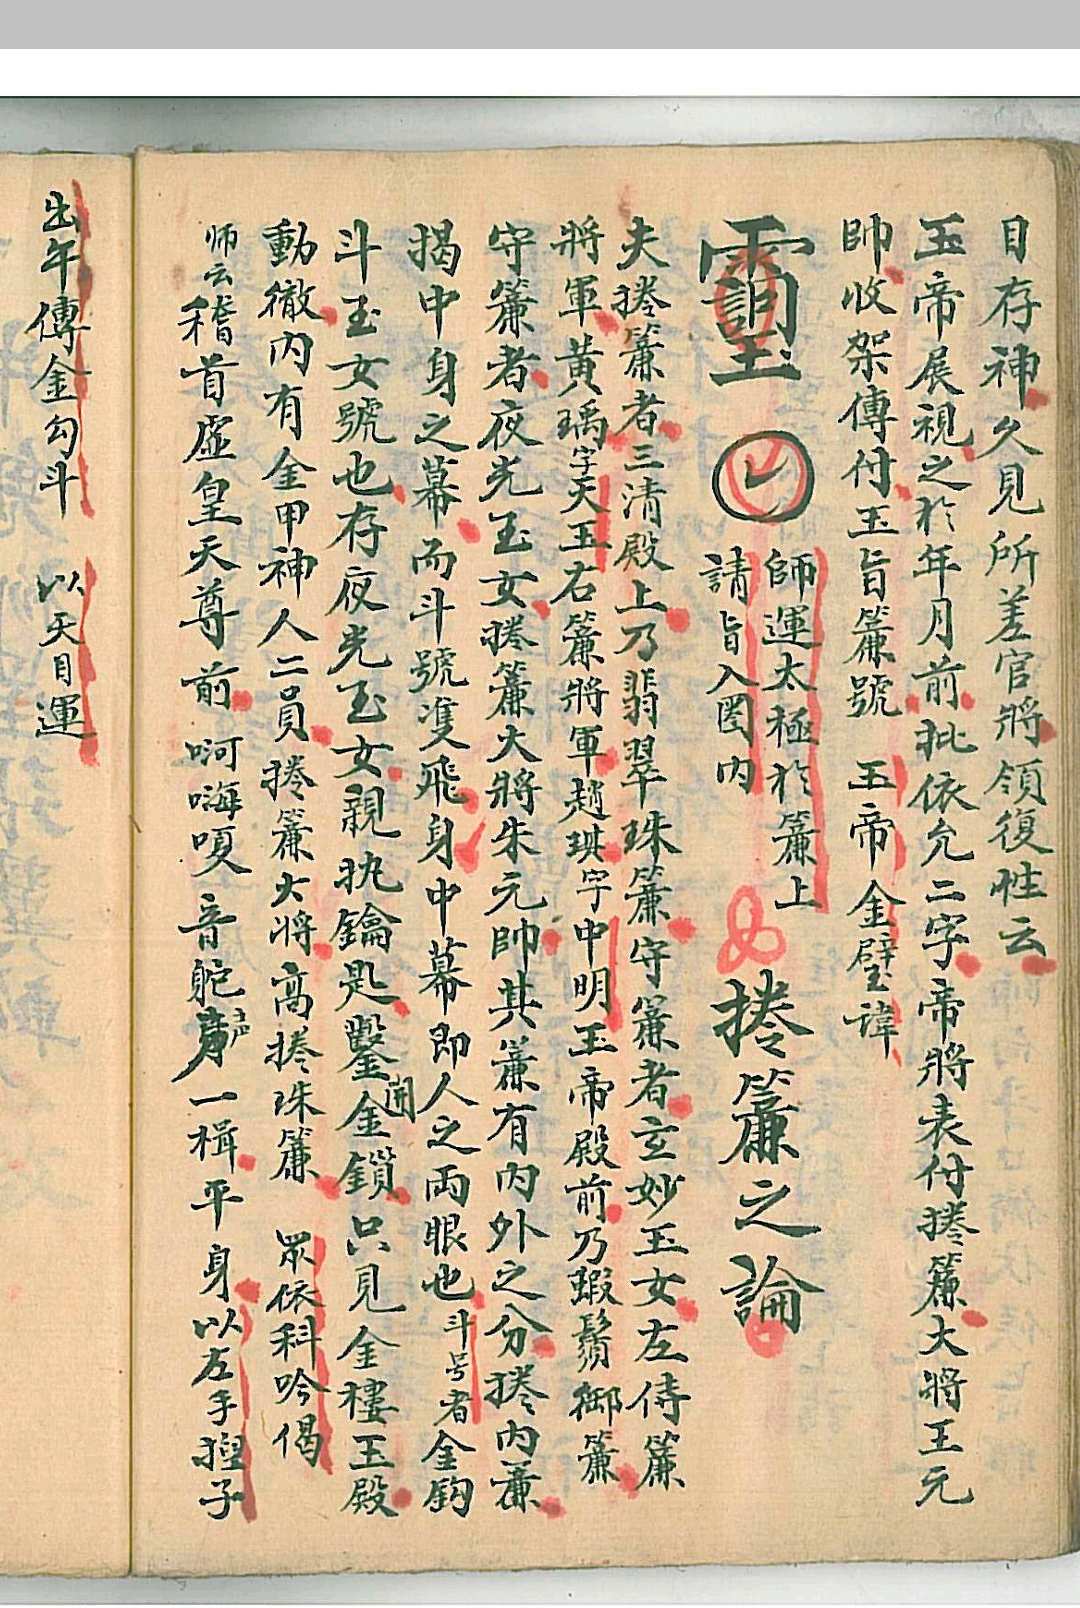 目存神久見所差官將領復性云
玉帝展視之於年月前批依允二字帝將表付捲簾大將王元
帥收架傳付玉旨簾號 玉帝金璧諱
師運太極於簾上
請旨入圂內
捲簾之論
夫捲簾者三清殿上乃翡翠珠簾守簾者玄妙玉女左侍簾
將軍黃瑀字天玉右簾將軍趙琪字中明玉帝殿前乃蝦鬚御簾
守簾者夜光玉女捲簾大將朱元帥其簾有內外之分捲內簾
揭中身之幕而斗號隻飛身中幕即人之兩眼也斗号者金鈎
斗玉女號也存夜光玉女親执鑰匙鑿開金鎖只見金樓玉殿
動徹內有金甲神人二員捲簾大將高捲珠簾 眾依科吟偈
师云稽首虛皇天尊前呵嗨嗄音躬声一楫平身以左手揑子
出午傳金勾斗 以天目運